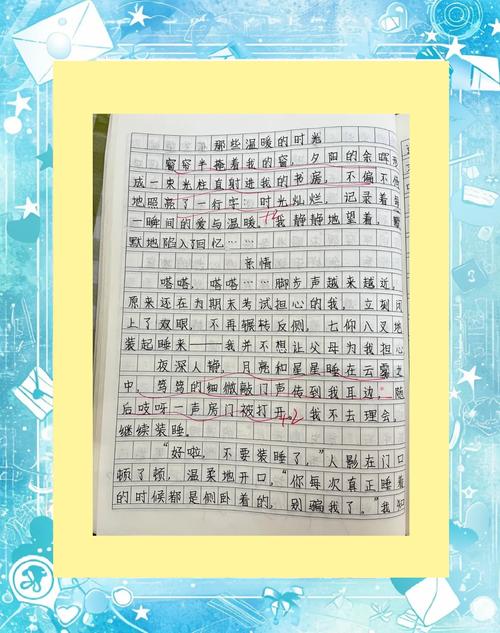 那些温暖的时光
窗帘半掩着我的窗，夕阳的余晖形
成一束光柱直射进我的书房，不偏不倚
地照亮了一行字：时光灿烂，记录着每
一瞬间的爱与温暖。+2我静静地望着，默
默地陷入了回忆……
亲情
嗒嗒，嗒嗒……脚步声越来越近，
原来还在为期末考试担心的我，立刻闭
上了双眼，不再辗转反侧，七仰八叉地
装起睡来——我并不想让父母为我担心。
夜深人静，月亮和星星睡在云雾之
中，笃笃的细微敲门声传到我耳边，随
后吱呀一声房门被打开。+2我不去理会，
继续装睡。
“好啦，不要装睡了，”人影在门口
顿了顿，温柔地开口。“你每次真正睡着
的时候都是侧卧着的，别骗我了。”我知